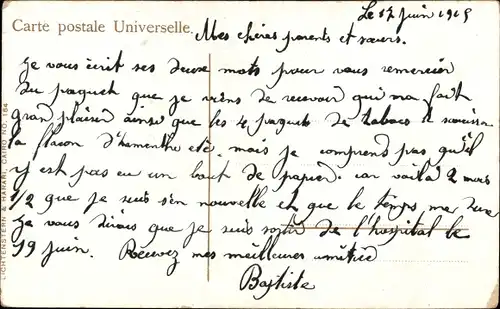 Carte postale Universelle.
Le 17 juin 1915
Mes chères parents et sœurs.
Je vous écrit ses deux mots pour vous remercier
du paquet que je viens de recevoir qui ma fait
grand plaisir ainsi que les 4 paquets de tabacs
la flacon d'hamenthe etc. mais je comprend pas qu'il
y est pas eu un bout de papier. car voilà 2 mois
1/2 que je suis s'en nouvelle et que le temps me dure
Je vous dirais que je suis sortir de l'hospital le
19 juin. Recevez mes meilleures amitiée
Baptiste
LICHTENSTERN & HARARI, CAIRO NO. 164